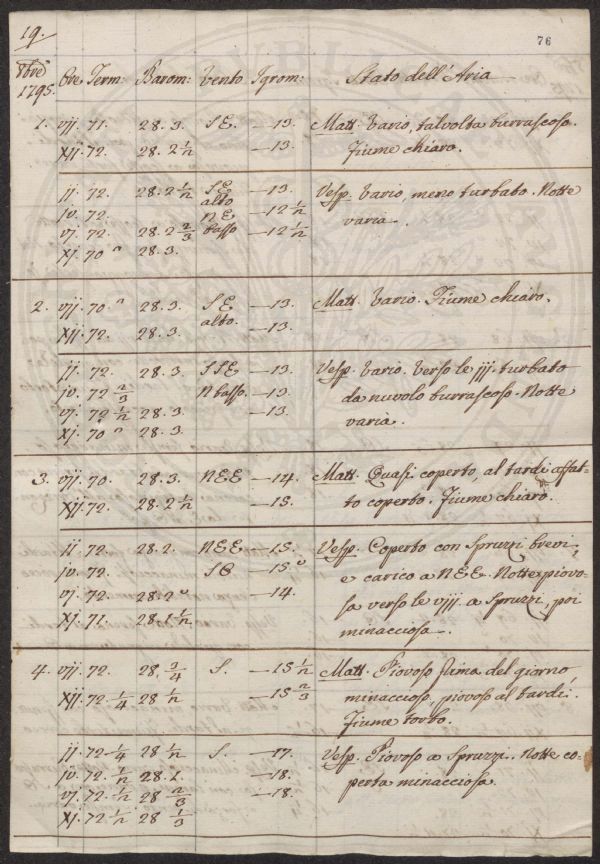 19. 76
8bre
1795. Ore Term: Barom: Vento Igrom: Stato dell'Aria
1. vij. 71. 28. 3. SE. —13. Matt. Vario, talvolta burrascoso.
xij. 72. 28. 2 1/2 —13. Fiume chiaro.
ij. 72. 28. 2 1/2 SE —13. Vesp. Vario, meno turbato. Notte
alto
iv. 72. NE —12 1/2 varia.
vj. 72. 28. 2 2/3 basso —12 1/2
xj. 70 " 28. 3.
2. vij. 70 " 28. 3. SE —13. Matt. Vario. Fiume chiaro.
xij. 72. 28. 3. alto. —13.
ij. 72. 28. 3. SSE —13. Vesp. Vario. Verso le iij. turbato
iv. 72 2/3 N basso. —13. da nuvolo burrascoso. Notte
vj. 72 1/2 28. 3. —13. varia.
xj. 70 " 28. 3.
3. vij. 70. 28. 3. NEE —14. Matt. Quasi coperto, al tardi affat-
xij. 72. 28. 2 1/2 —15. to coperto. Fiume chiaro.
ij. 72. 28. 2. NEE —15. Vesp. Coperto con Spruzzi brevi,
iv. 72. SE —15 " e carico a NEE. Notte piovo-
vj. 72. 28. 2 " —14. sa verso le viij. a Spruzzi, poi
xj. 71. 28. 1 1/2 minacciosa.
4. vij. 72. 28. 3/4 S. —15 1/2 Matt. Piovoso prima del giorno
xij. 72 1/4 28 1/2 —15 2/3 minaccioso, piovoso al tardi.
Fiume torbo.
ij. 72 1/4 28 1/2 S. —17. Vesp. Piovoso a Spruzzi. Notte co-
iv. 72. 1/2 28. 1. —18. perta minacciosa.
vj. 72. 1/2 28 2/3 —18.
xj. 72 1/2 28 1/3